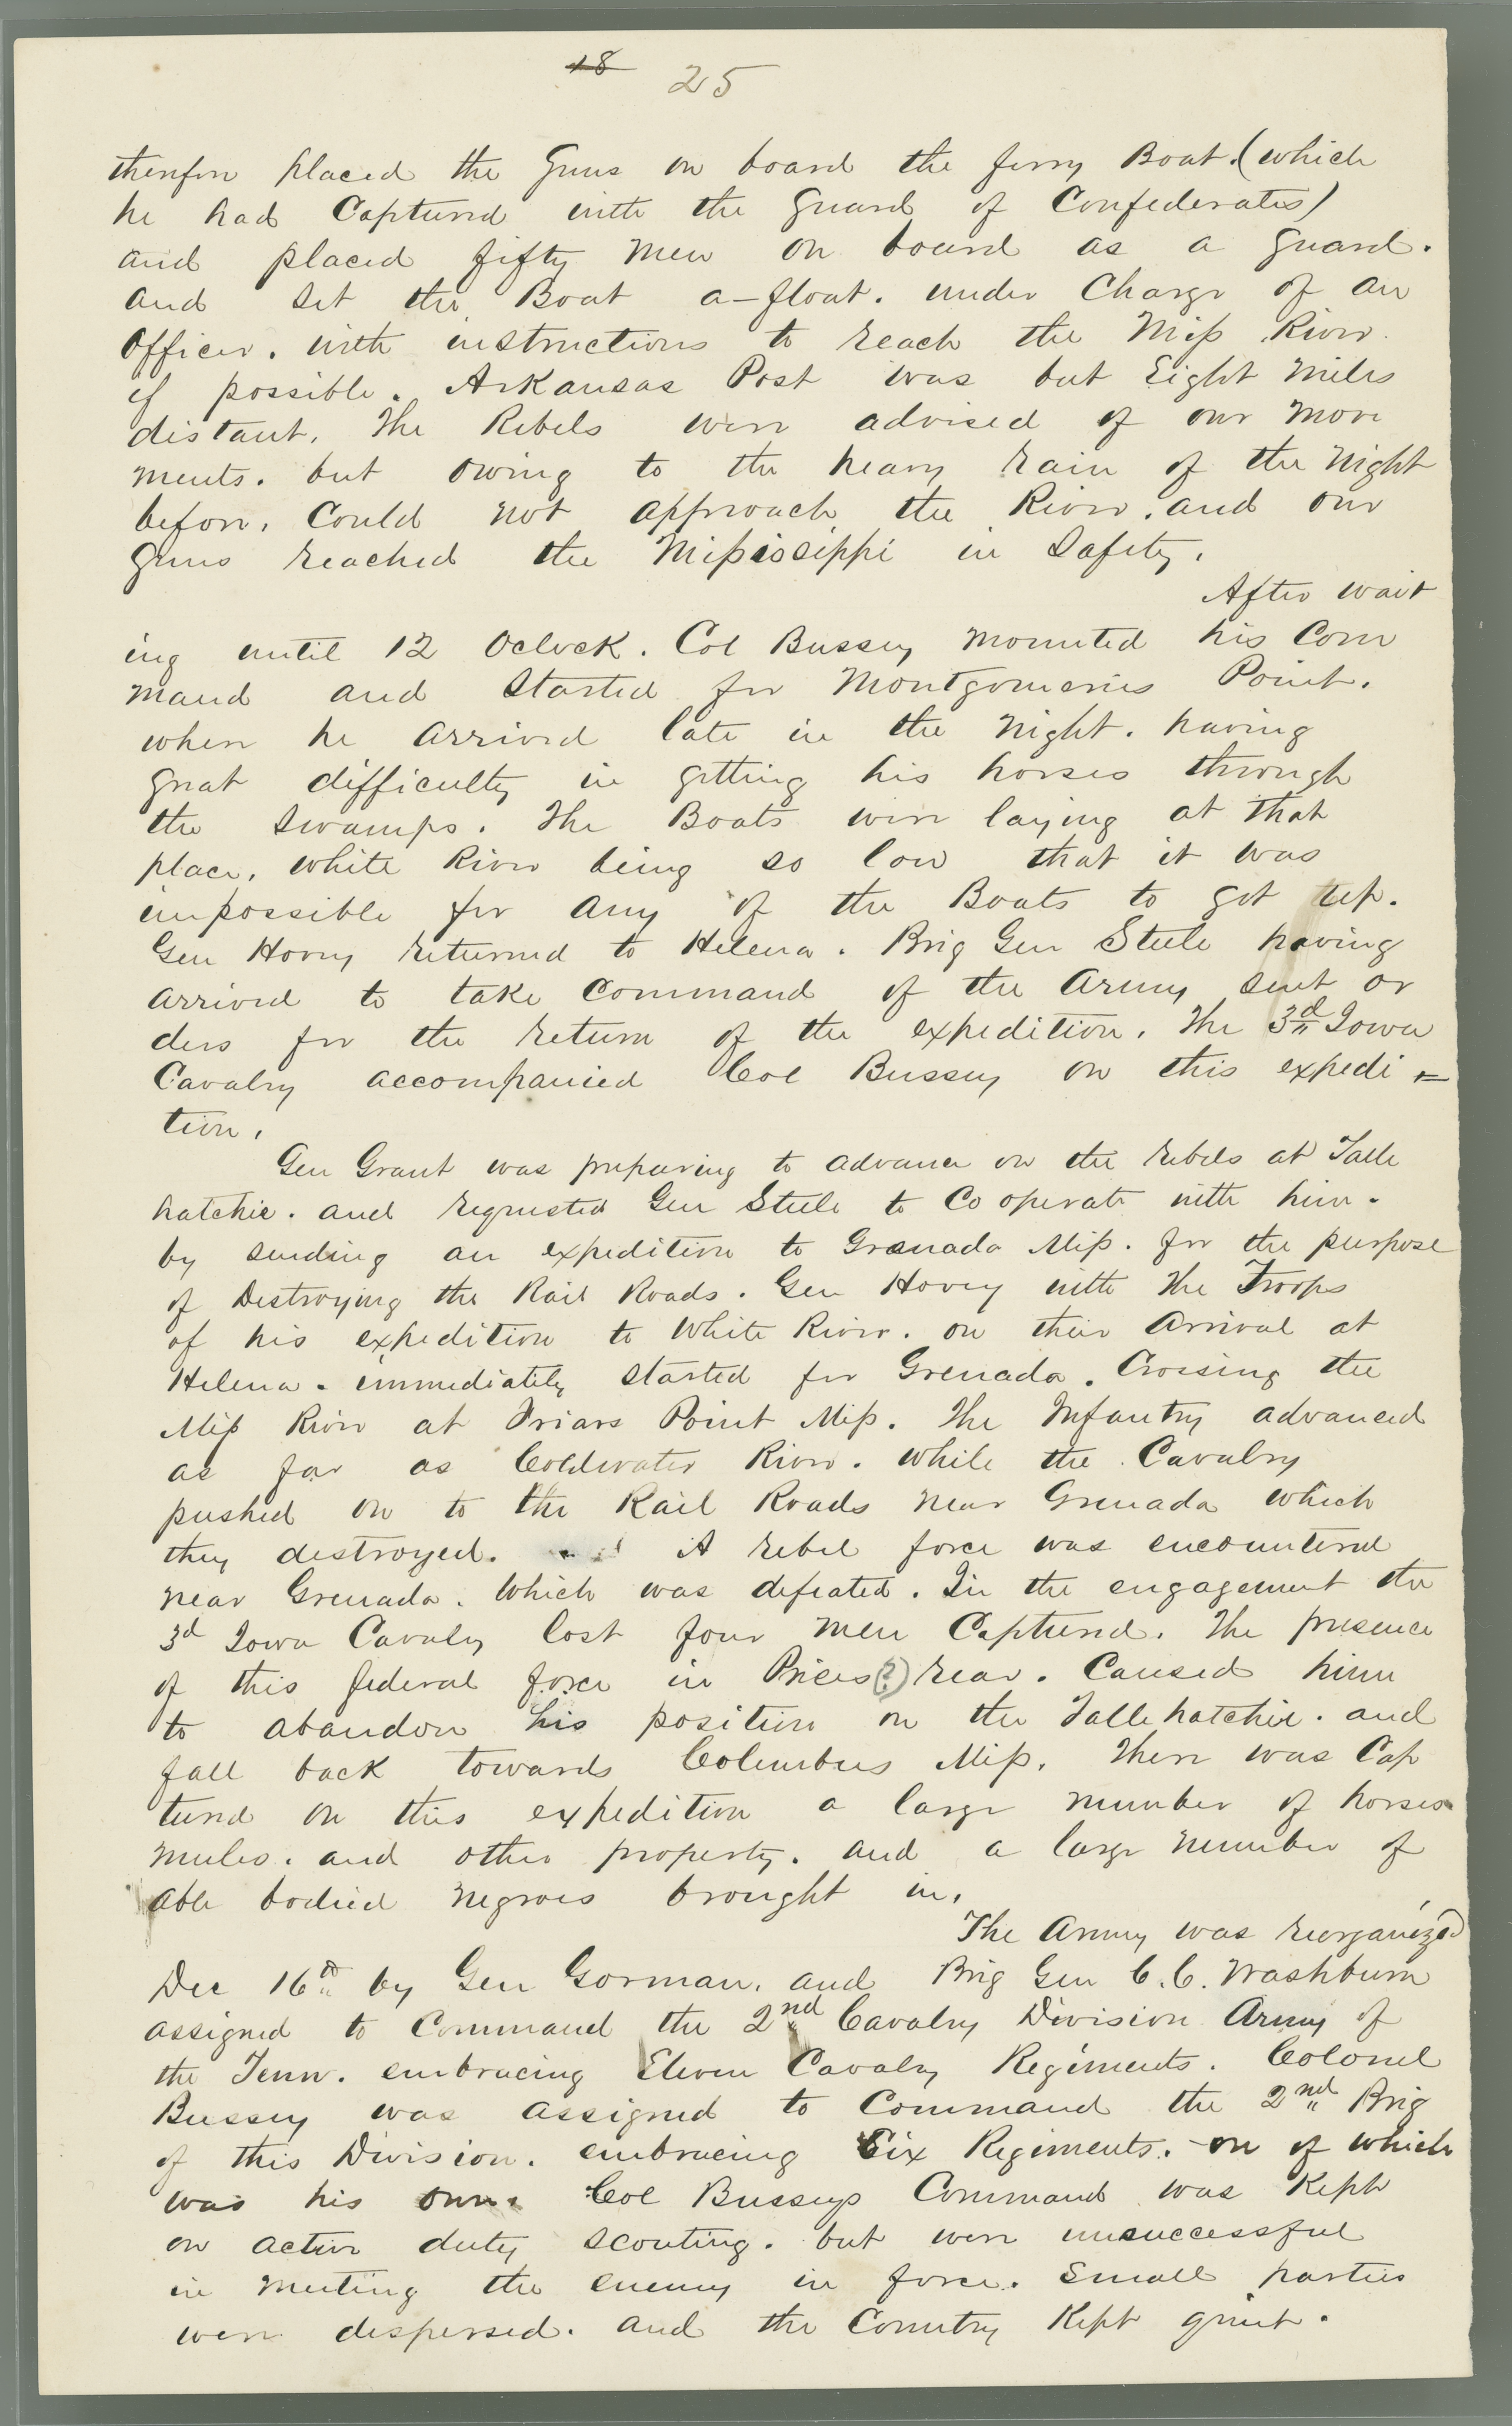 18 25
therefore placed the Guns on board the ferry Boat. (which
he had Captured with the Guard of Confederates)
and placed fifty men on board as a guard.
and set the Boat a-float. under Charge of an
Officer. with instructions to reach the Miss River.
if possible. Arkansas Post was but Eight Miles
distant. The Rebels were advised of our move
ments. but owing to the heavy rain of the Night
before, Could not approach the River. and our
Guns reached the Missisissippi in Safety.
After wait
ing until 12 Oclock. Col Bussey mounted his Com
mand and Started for Montgomeries Point.
when he arrived late in the Night. having
great difficulty in getting his horses through
the Swamps. The Boats were laying at that
place, White River being so low that it was
impossible for any of the Boats to got up.
Gen Hovey returned to Helena. Brig Gen Steele having
arrived to take Command of the Army sent or
ders for the return of the expedition. The 3rd Iowa
Cavalry accompanied Col Bussey on this expedi=
tion.
Gen Grant was preparing to advance on the rebels at Talle
hatchie. and requested Gen Steele to Co operate with him.
by sending an expedition to Granada Miss. for the purpose
of Destroying the Rail Roads. Gen Hovey with the Troops
of his expedition to White River. on their Arrival at
Helena. immediately started for Grenada. Crossing the
Miss River at Friars Point Miss. The Infantry advanced
as far as Coldwater River. while the Cavalry
pushed on to the Rail Roads near Grenada which
they destroyed. A rebel force was encountered
near Grenada. Which was defeated. In the engagement the
3d Iowa Cavalry lost four men Captured. The presence
of this federal force in Prices(?) rear. Caused him
to abandon his position on the Tallehatchie. and
fall back towards Columbus Miss. There was Cap
tured on this expedition a large number of horses
mules. and other property. and a large number of
able bodied negroes brought in.
The Army was reorganized
Dec 16th by Gen Gorman. and Brig Gen C.C. Washburn
assigned to Command the 2nd Cavalry Division Army of
the Tenn. embracing Eleven Cavalry Regiments. Colonel
Bussey was assigned to Command the 2nd Brig
of this Division. embracing Six Regiments. one of which
was his own. Col Busseys Command was Kept
on active duty scouting. but were unsuccessful
in meeting the enemy in force. Small parties
were dispersed. and the Country Kept quiet.